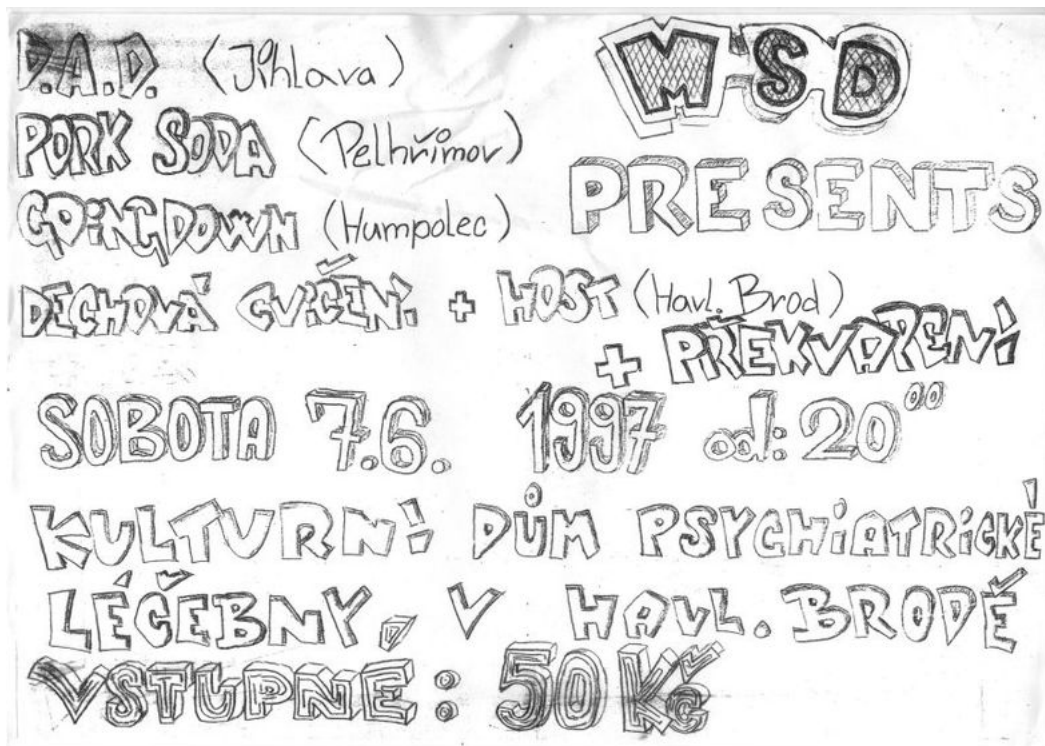 D.A.D. (Jihlava)
PORK SODA (Pelhřimov)
GOiNGDOWN (Humpolec)
MSD
PRESENTS
DECHOVÁ CVIČENí + HOST (Havl. Brod)
+ PŘEKVAPENí
SOBOTA 7.6. 1997 od: 20⁰⁰
KULTURNí DŮM PSYCHiATRiCKÉ
LÉČEBNY, V HAVL. BRODĚ
VSTUPNÉ: 50 Kč